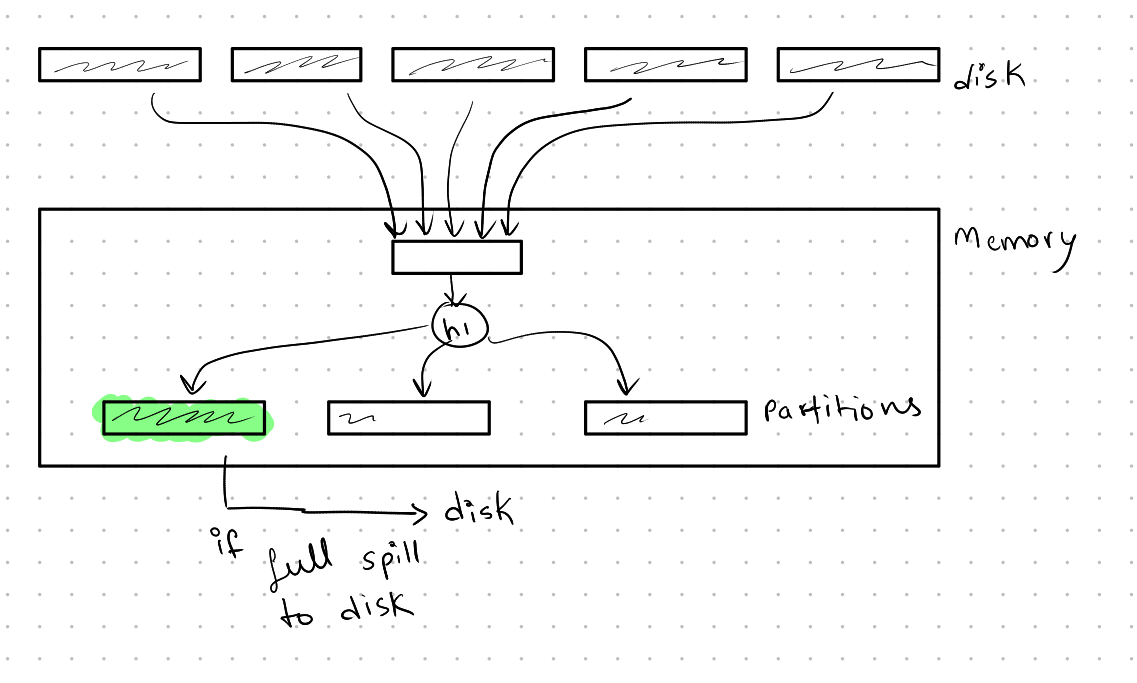 disk
Memory
h1
Partitions
disk
if full spill
to disk